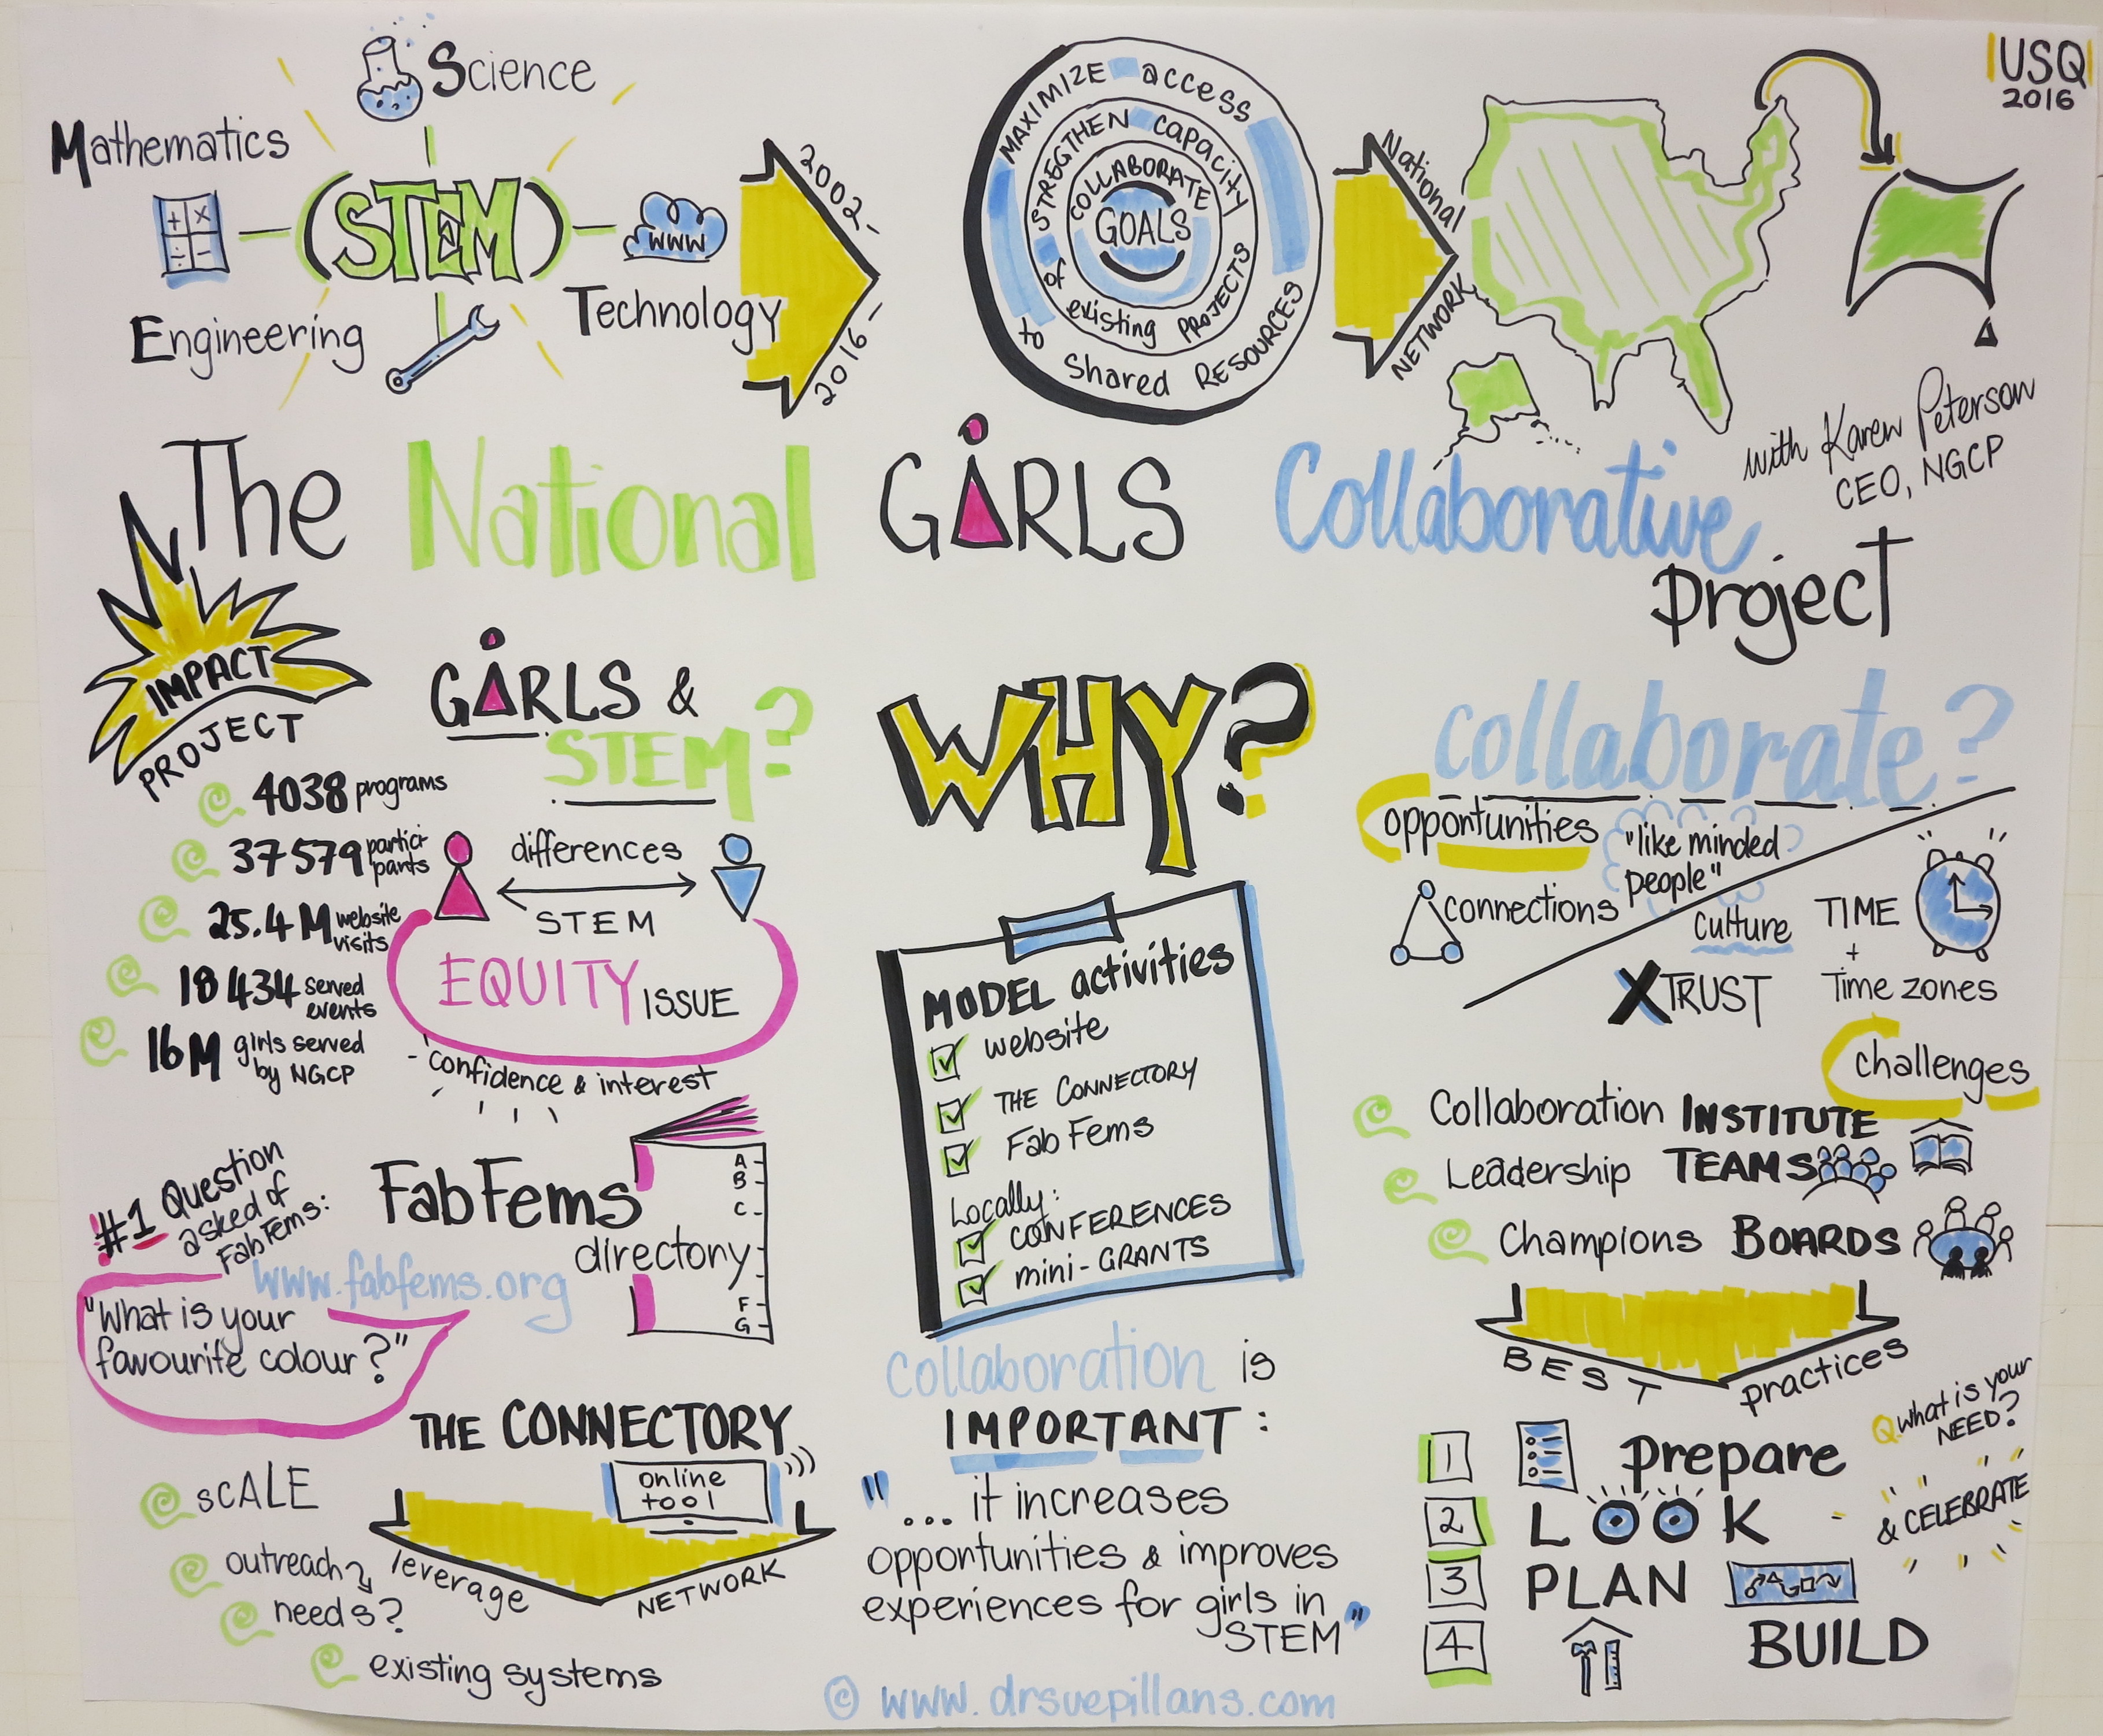 Science
Mathematics
(STEM)
+ x
÷ -
www
Engineering
Technology
2002-
2016-
MAXIMIZE access
to Shared RESOURCES
STREGTHEN capacity
of existing PROJECTS
COLLABORATE
GOALS
National
NETWORK
USQ
2016
with Karen Peterson
CEO, NGCP
The National GIRLS Collaborative
project
IMPACT
PROJECT
4038 programs
37579 partici-
pants
25.4M website
visits
18434 served
events
16M girls served
by NGCP
GIRLS &
STEM?
differences
STEM
EQUITY ISSUE
- confidence & interest
WHY?
collaborate?
opportunities
"like minded
people"
connections
culture
TIME
+
Time zones
X TRUST
challenges
MODEL activities
website
THE CONNECTORY
Fab Fems
Locally:
CONFERENCES
mini-GRANTS
Collaboration INSTITUTE
Leadership TEAMS
Champions BOARDS
BEST practices
#1 Question
asked of
FabFems:
"What is your
favourite colour?"
FabFems
directory
www.fabfems.org
A
B
C
F
G
THE CONNECTORY
online
tool
leverage NETWORK
scALE
outreach
needs?
existing systems
collaboration is
IMPORTANT:
"... it increases
opportunities & improves
experiences for girls in
STEM"
1 prepare
2 LOOK
3 PLAN
4 BUILD
Q what is your
NEED?
& CELEBRATE
© www.drsuepillans.com